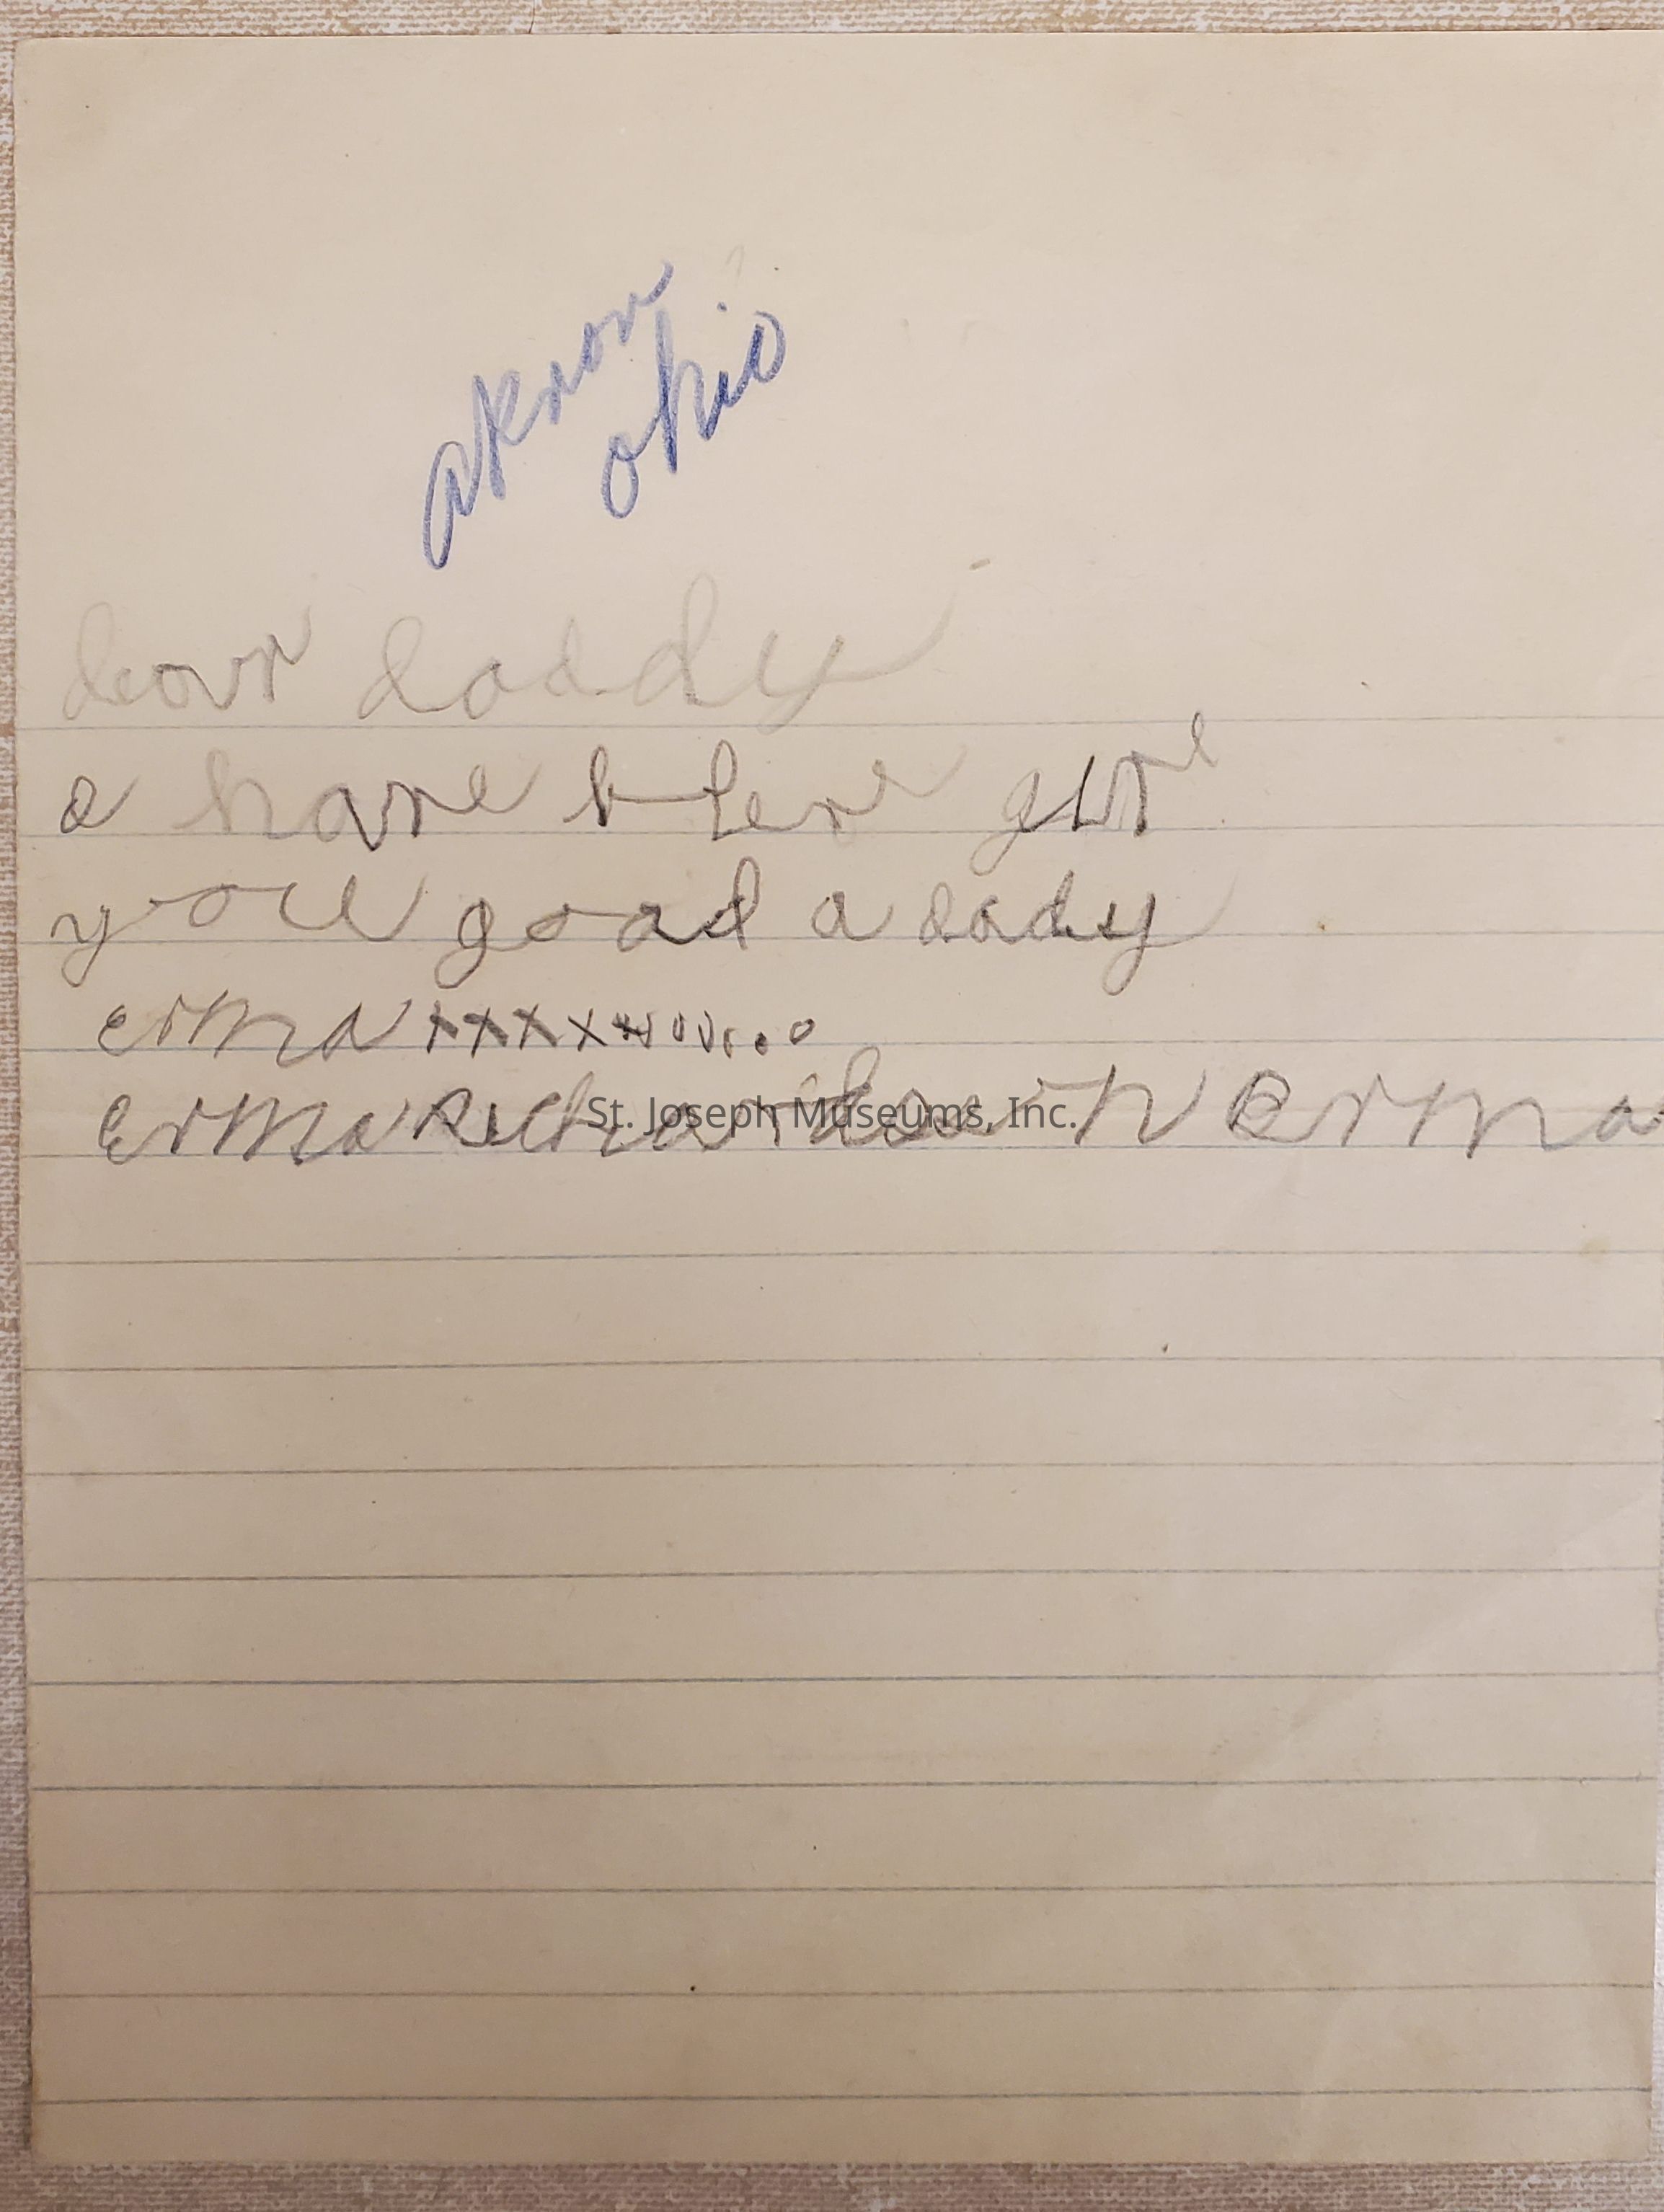 akron
ohio
dear daddy
a have
you good a dady
erma xxxxx
Erma Richardson Erma
St. Joseph Museums, Inc.